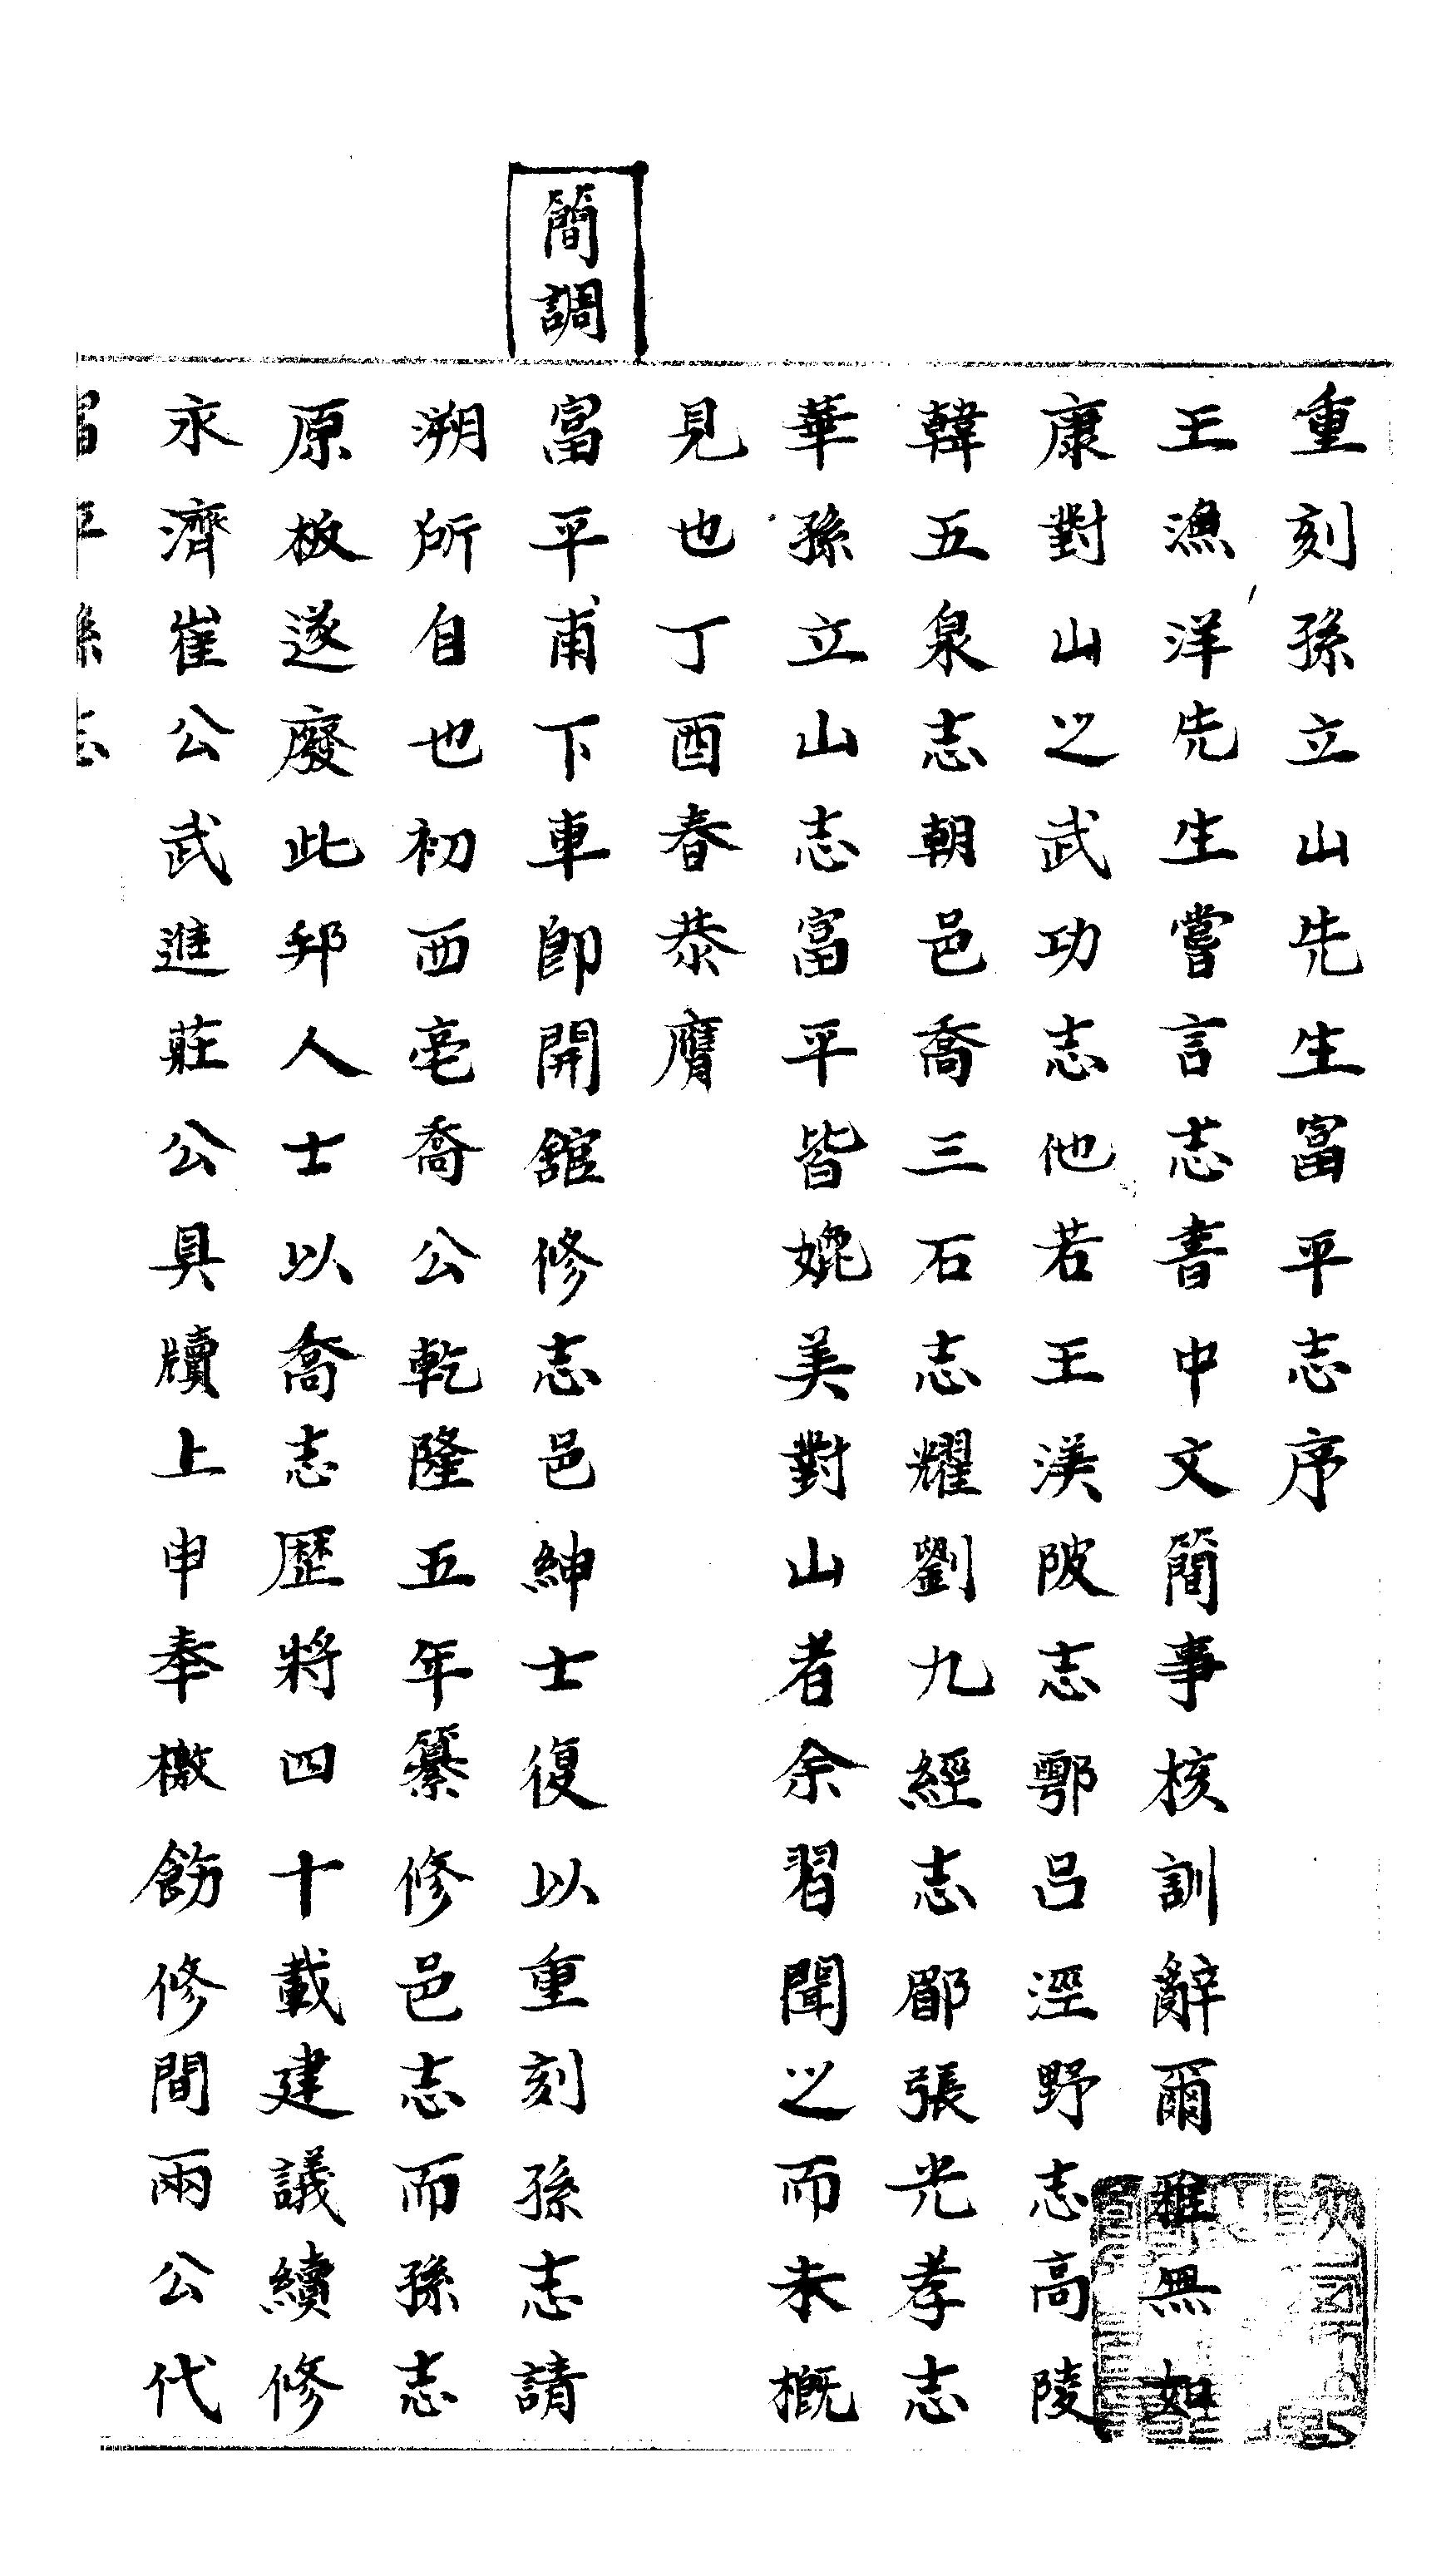 重刻孫立山先生富平志序
王漁洋先生嘗言志書中文簡事核訓辭爾雅無如
康對山之武功志他若王渼陂志鄠呂涇野志高陵
韓五泉志朝邑喬三石志耀劉九經志郿張光孝志
華孫立山志富平皆媲美對山者余習聞之而未概
見也丁酉春恭膺
簡調
富平甫下車卽開舘修志邑紳士復以重刻孫志請
溯所自也初西亳喬公乾隆五年纂修邑志而孫志
原板遂廢此邦人士以喬志歷將四十載建議續修
永濟崔公武進莊公具牘上申奉檄飭修間兩公代
富平孫志